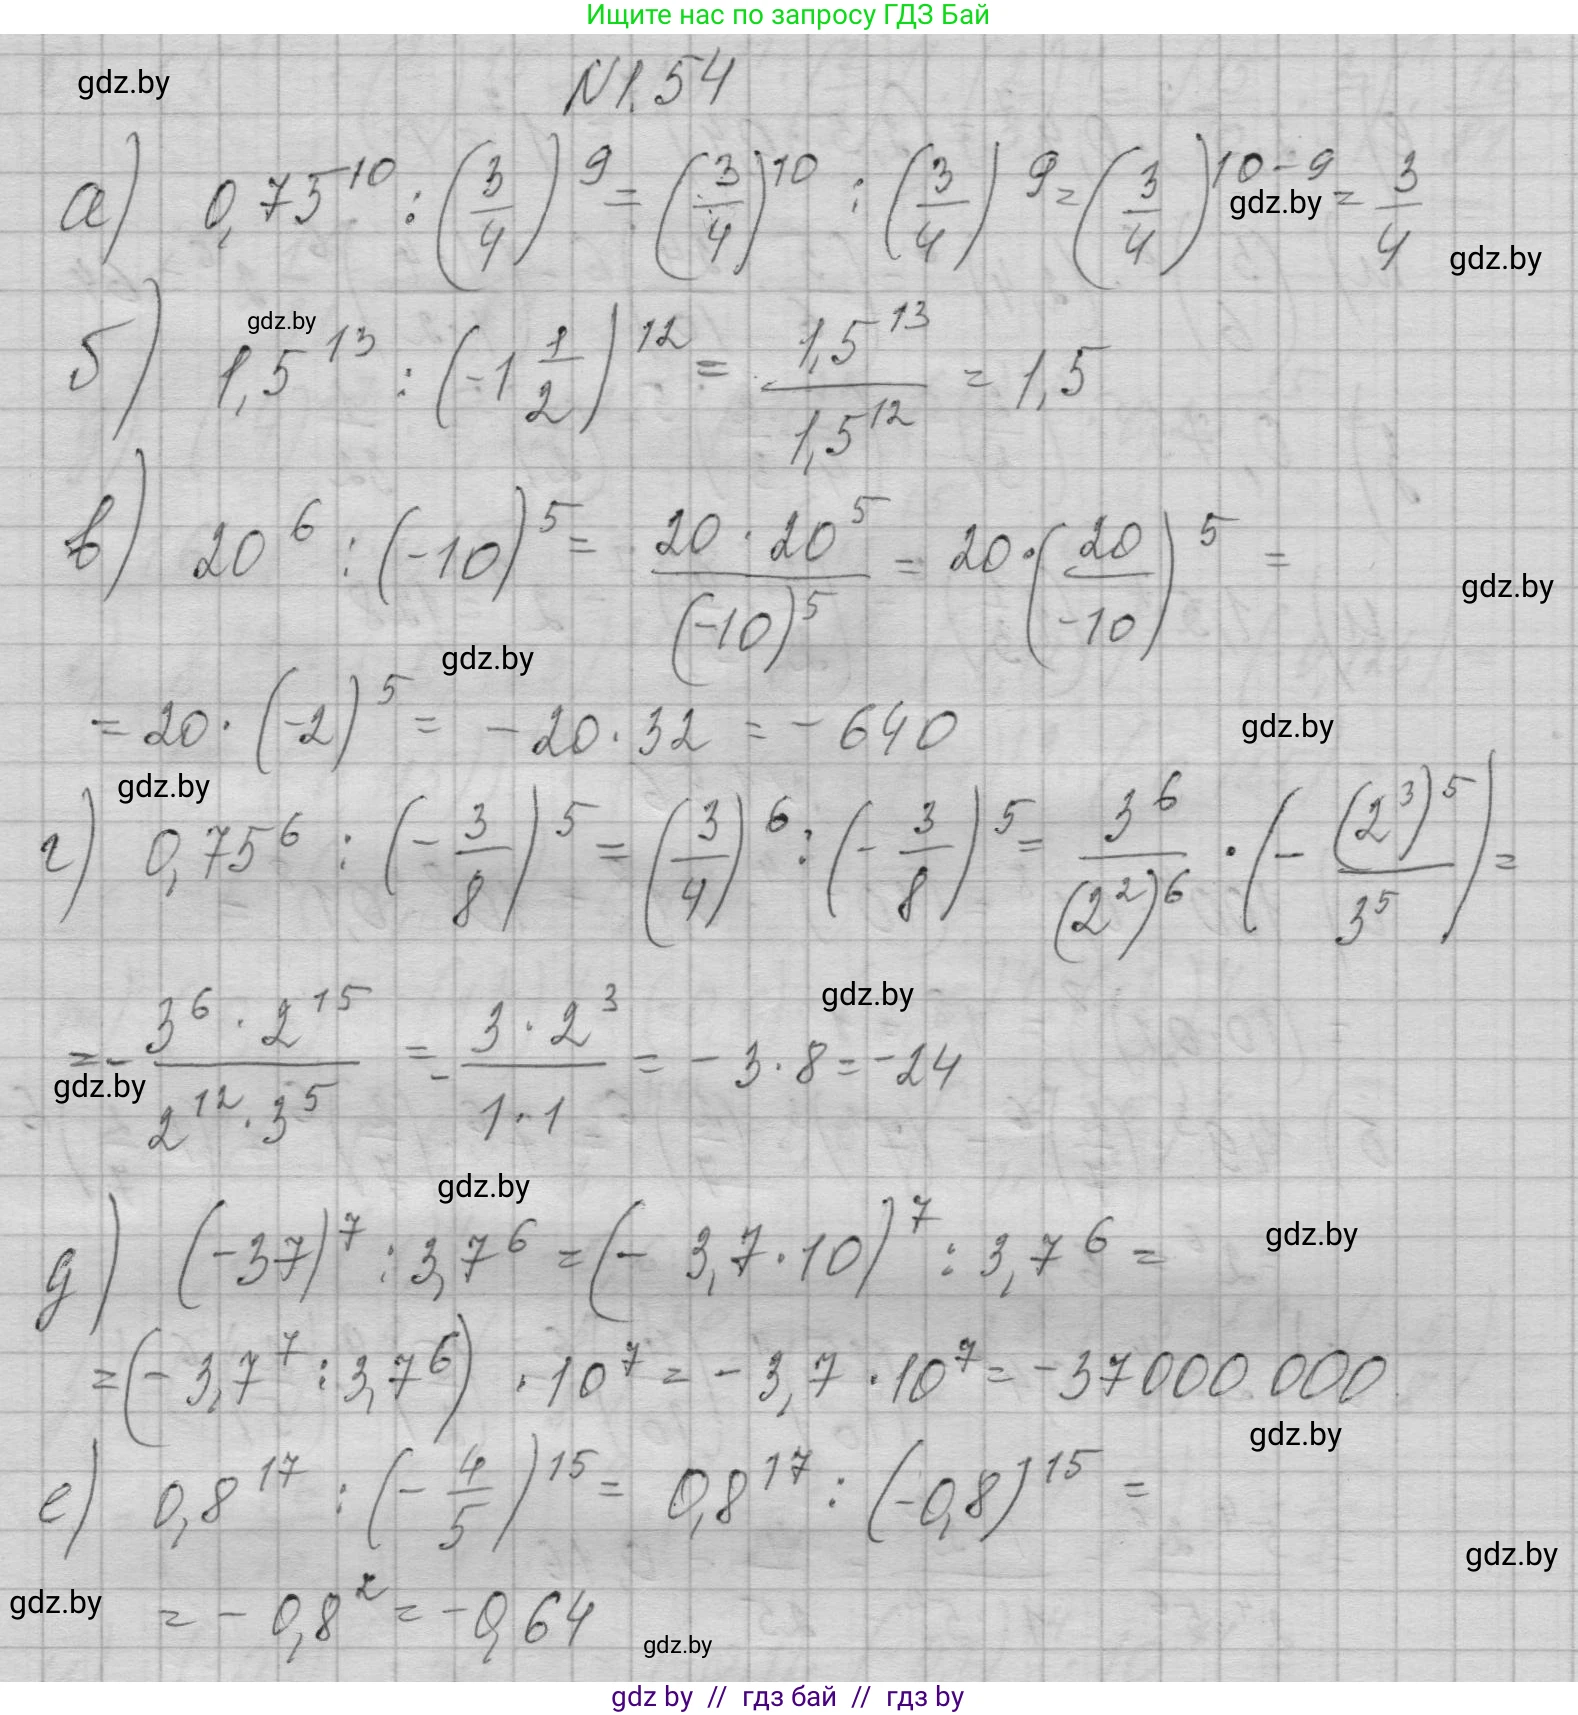 Ищите нас по запросу ГДЗ Бай
gdz.by
N1.54
а) 0,75^10 : (3/4)^9 = (3/4)^10 : (3/4)^9 = (3/4)^(10-9) = 3/4
gdz.by
gdz.by
gdz.by
б) 1,5^13 : (-1 1/2)^12 = 1,5^13/1,5^12 = 1,5
в) 20^6 : (-10)^5 = (20 · 20^5)/(-10)^5 = 20 · (20/-10)^5 =
gdz.by
gdz.by
= 20 · (-2)^5 = -20 · 32 = -640
gdz.by
gdz.by
г) 0,75^6 : (-3/8)^5 = (3/4)^6 : (-3/8)^5 = 3^6/(2^2)^6 · (-(2^3)^5/3^5) =
gdz.by
= -(3^6 · 2^15)/(2^12 · 3^5) = -(3 · 2^3)/(1 · 1) = -3 · 8 = -24
gdz.by
gdz.by
gdz.by
д) (-37)^7 : 3,7^6 = (-3,7 · 10)^7 : 3,7^6 =
= (-3,7^7 : 3,7^6) · 10^7 = -3,7 · 10^7 = -37000 000
gdz.by
е) 0,8^17 : (-4/5)^15 = 0,8^17 : (-0,8)^15 =
gdz.by
gdz.by
= -0,8^2 = -0,64
gdz.by
gdz by // гдз бай // гдз by